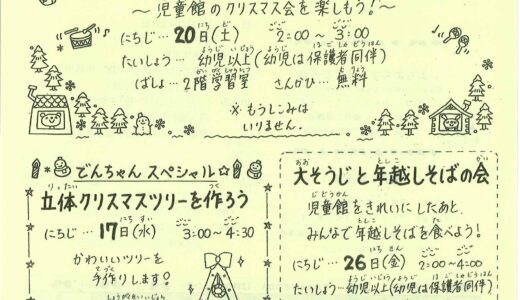 ～児童館のクリスマス会を楽しもう！～
にちじ…20日(土) 2:00～3:00
たいしょう…幼児以上(幼児は保護者同伴)
ばしょ…2階学習室 さんかひ…無料
※もうしこみは
いりません。
でんちゃんスペシャル☆
立体クリスマスツリーを作ろう
にちじ…17日(水) 3:00～4:30
かわいいツリーを
手作りします♡
大そうじと年越しそばの会
児童館をきれいにしたあと、
みんなで年越しそばを食べよう！
にちじ…26日(金) 2:00～4:00
たいしょう…幼児以上(幼児は保護者同伴)